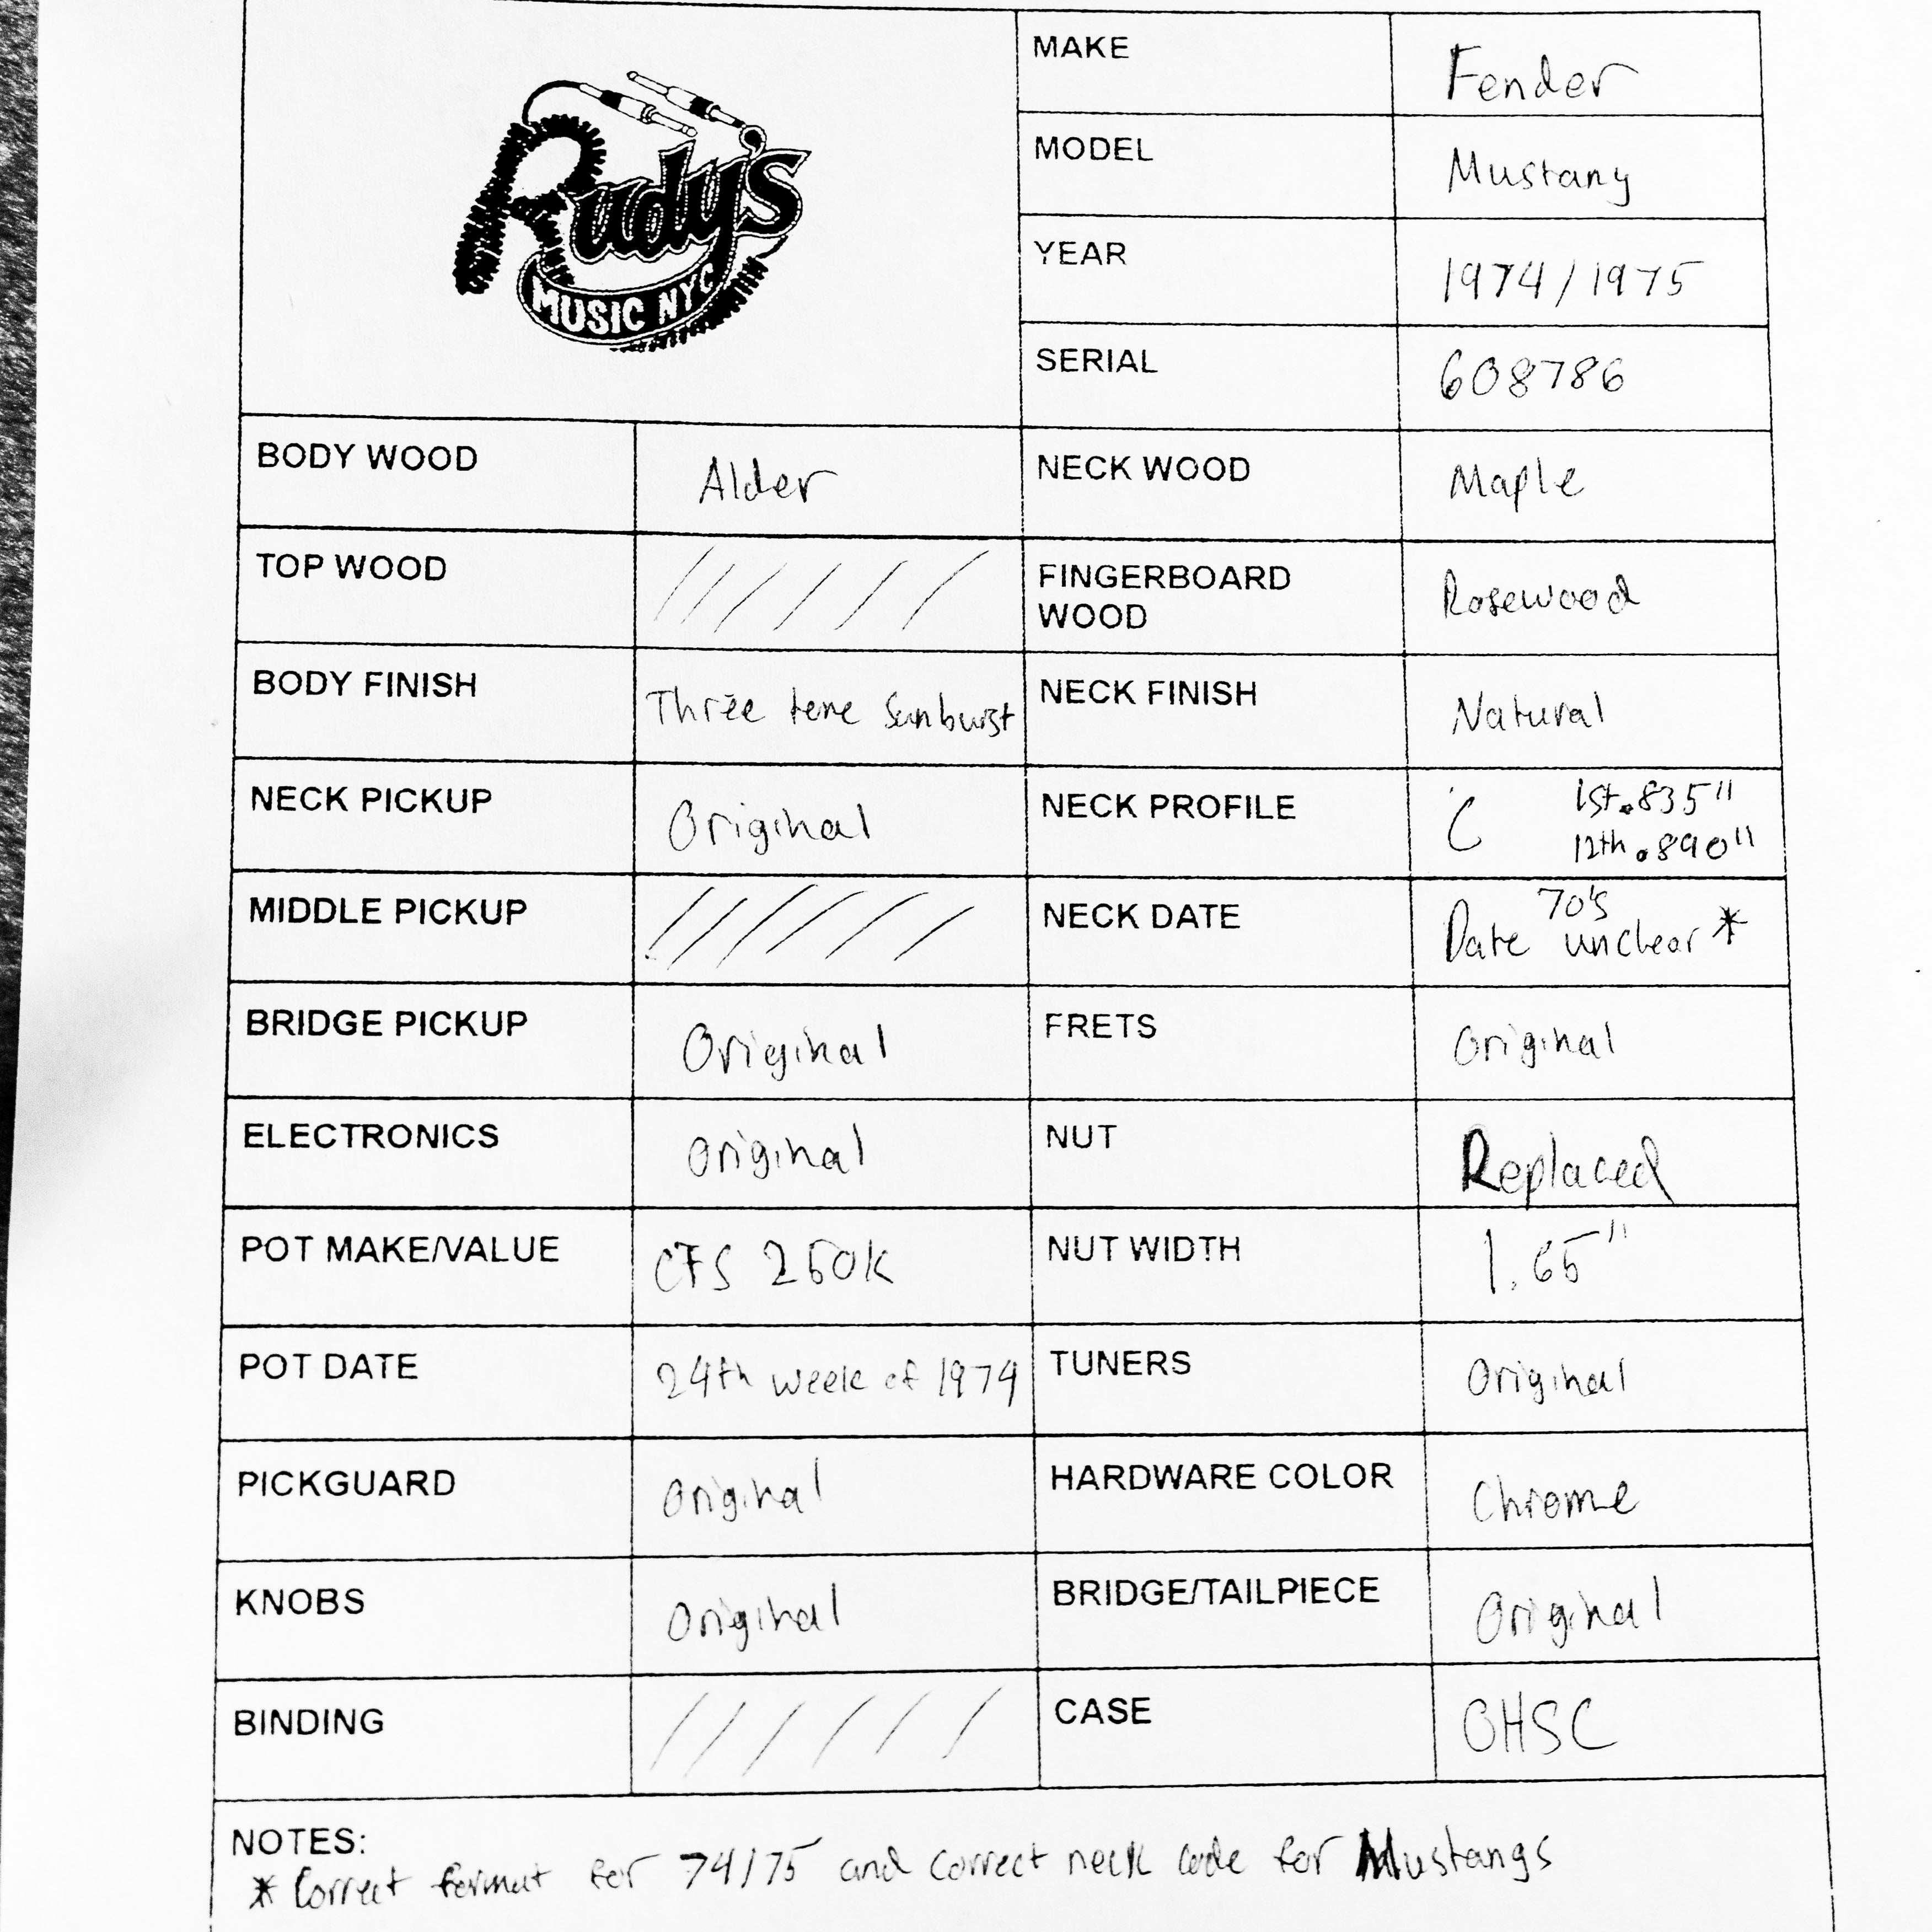 Rudy's
MUSIC NYC
MAKE Fender
MODEL Mustang
YEAR 1974/1975
SERIAL 608786
BODY WOOD Alder NECK WOOD Maple
TOP WOOD FINGERBOARD
WOOD Rosewood
BODY FINISH Three tone Sunburst NECK FINISH Natural
NECK PICKUP Original NECK PROFILE C 1st .835"
12th .890"
MIDDLE PICKUP NECK DATE 70's
Date unclear *
BRIDGE PICKUP Original FRETS Original
ELECTRONICS Original NUT Replaced
POT MAKE/VALUE CTS 250K NUT WIDTH 1.65"
POT DATE 24th week of 1974 TUNERS Original
PICKGUARD Original HARDWARE COLOR Chrome
KNOBS Original BRIDGE/TAILPIECE Original
BINDING CASE OHSC
NOTES:
* Correct format for 74/75 and correct neck code for Mustangs